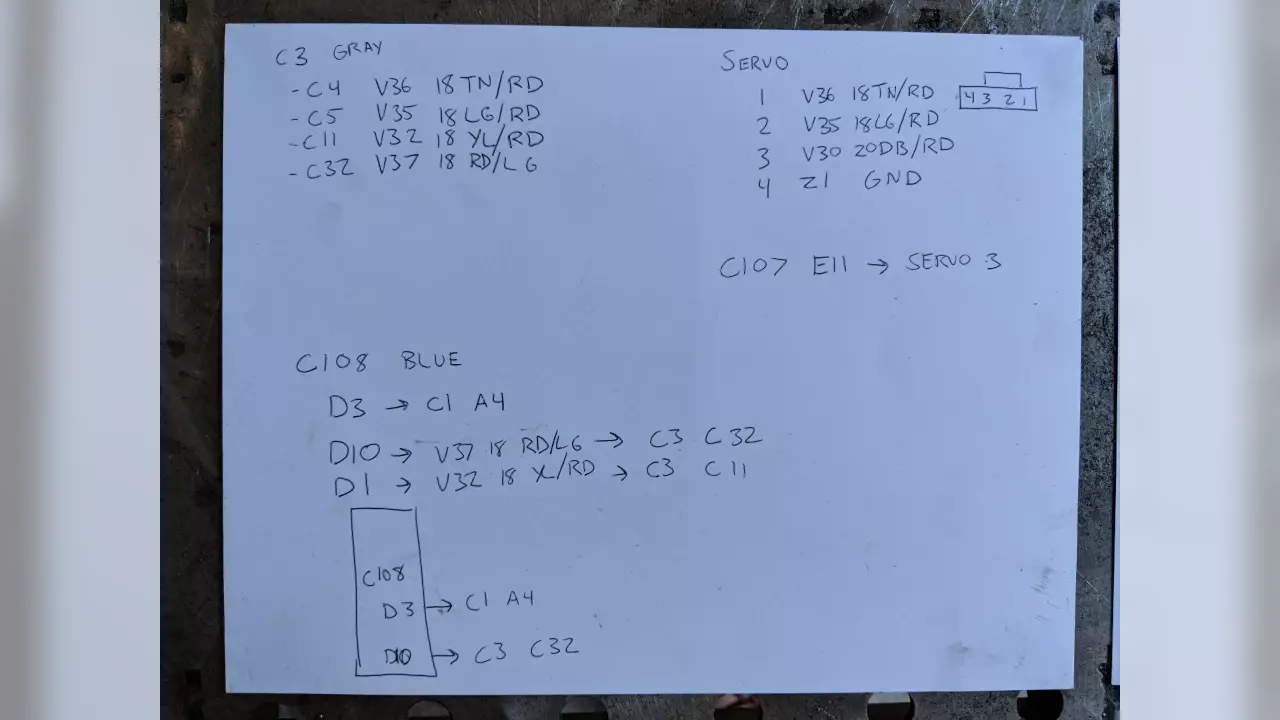 C3 GRAY
- C4 V36 18 TN/RD
- C5 V35 18 LG/RD
- C11 V32 18 YL/RD
- C32 V37 18 RD/LG
SERVO
1 V36 18TN/RD
2 V35 18LG/RD
3 V30 20DB/RD
4 Z1 GND
4 3 2 1
C107 E11 → SERVO 3
C108 BLUE
D3 → C1 A4
D10 → V37 18 RD/LG → C3 C32
D1 → V32 18 YL/RD → C3 C11
C108
D3 → C1 A4
D10 → C3 C32